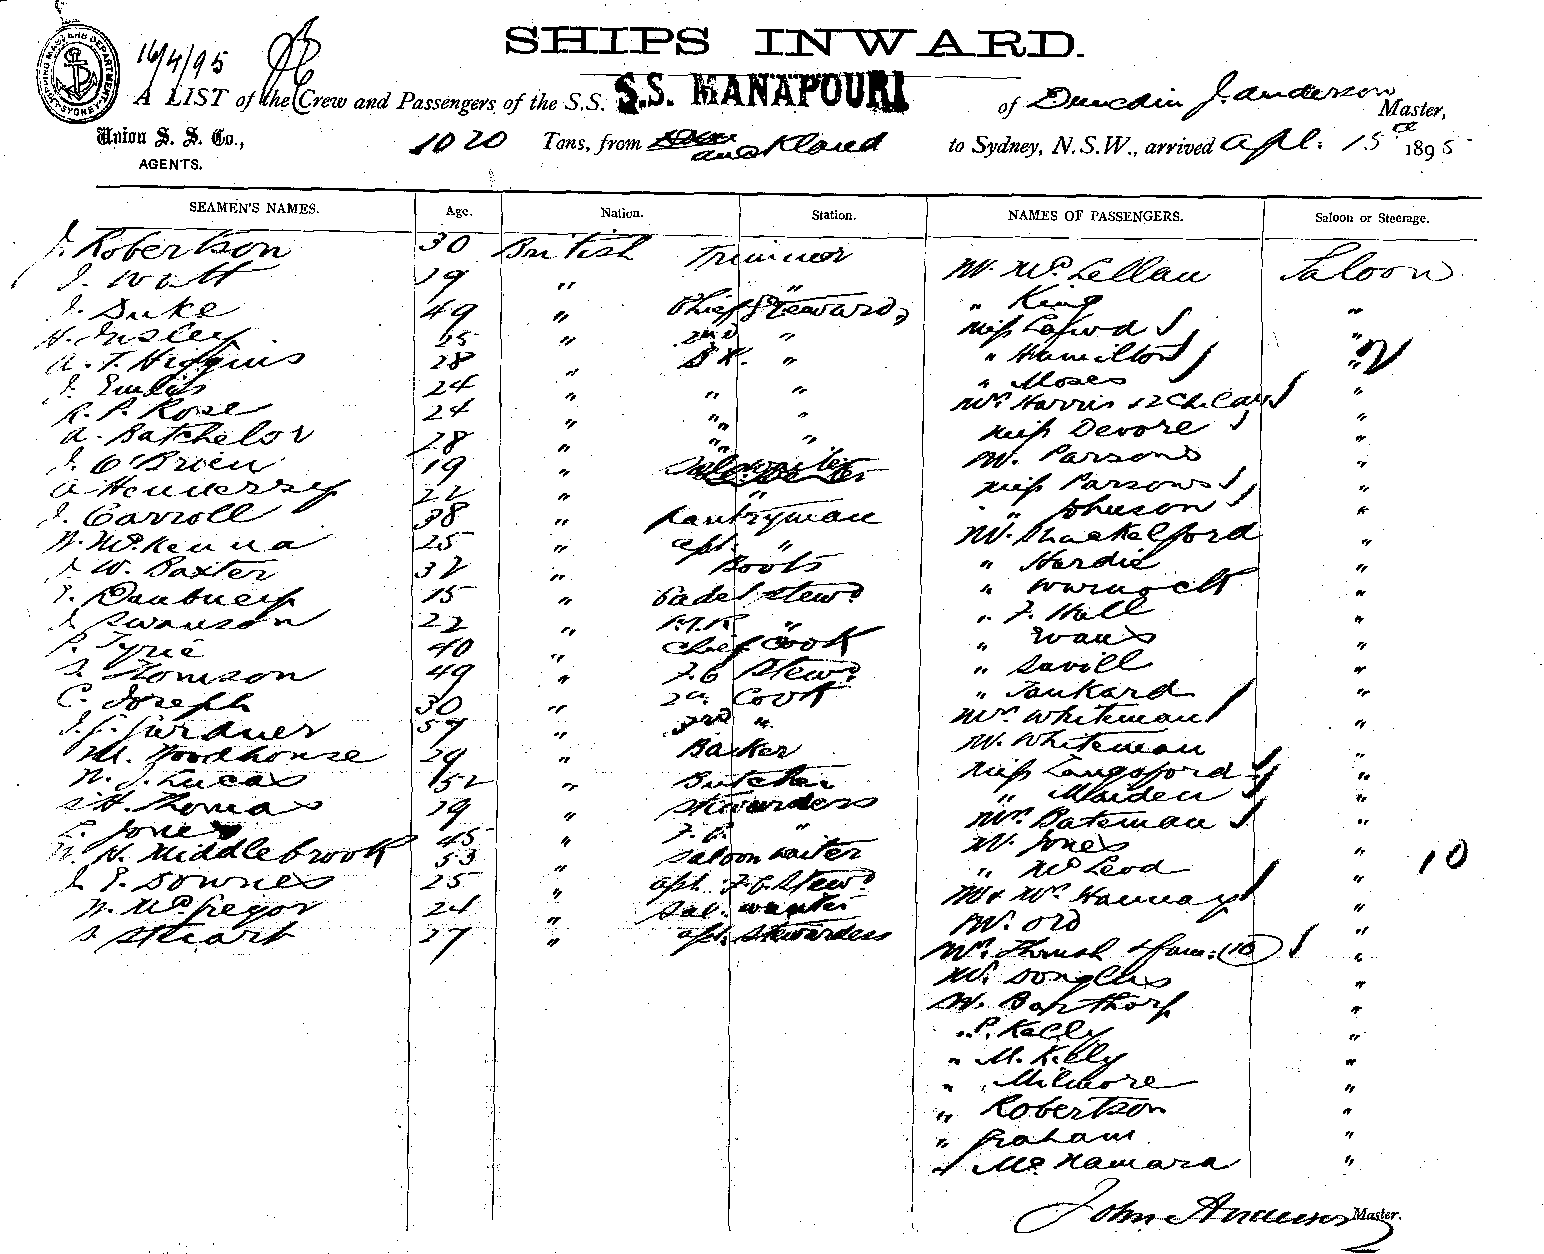 SHIPS INWARD.
16/4/95
A LIST of the Crew and Passengers of the S.S. S.S. MANAPOURI of Dunedin J. Anderson Master,
Union S. S. Co., 1020 Tons, from Auckland to Sydney, N.S.W., arrived Apl. 15th 1895
AGENTS.
SEAMEN'S NAMES. Age. Nation. Station. NAMES OF PASSENGERS. Saloon or Steerage.
J. Robertson 30 British Trimmer
J. Watt 19 " " Mr. McLellan Saloon
J. Duke 49 " Chief Steward " King "
H. Insley 25 " 2nd " Miss "
A. T. Higgins 28 " B.K. " " Hamilton " 2
J. 24 " " " " Moses "
R. P. Rose 24 " " " Mrs Harris & 2 Children "
A. Batchelor 28 " " " Miss Devore "
J. O'Brien 19 " Mr. Parsons "
A Hennessy 22 " " Miss Parsons "
J. Carroll 38 " Pantryman " Johnson "
W. McKenna 25 " apt. " Mr. Shackelford "
J. W. Baxter 32 " Boots " Hardie "
15 " Cadet Stewd " Warnock "
J Swanson 22 " " " F. Hall "
P. Tyrie 40 " Chief Cook " Evans "
S Thomson 49 " F.C Stewd " Savill "
C. Joseph 30 " 2nd Cook " Tankard "
J. G. Gardner 57 " 3rd " Mrs Whiteman "
M. Woodhouse 29 " Baker Mr. Whiteman "
W. J. Lucas 52 " Butcher Miss Langsford "
H. Thomas 29 " Stewardess " Maiden "
Jones 45 " F.C. " Mrs Bateman "
W. Middlebrook 53 " Saloon waiter Mr. Jones "
J E. Downes 25 " apt. F.C. Stewd " McLeod " 10
W. McGregor 24 " Sal. waiter Mr & Mrs Hannay "
S Stuart 27 " apt. Stewardess Mr. Ord "
Mrs. Thrush & fam: (10) "
Mr. Douglas "
Mr. Barthorp "
" P. Kelly "
" M. Kelly "
" Milmore "
" Robertson "
" Graham "
" McNamara "
John Anderson Master.